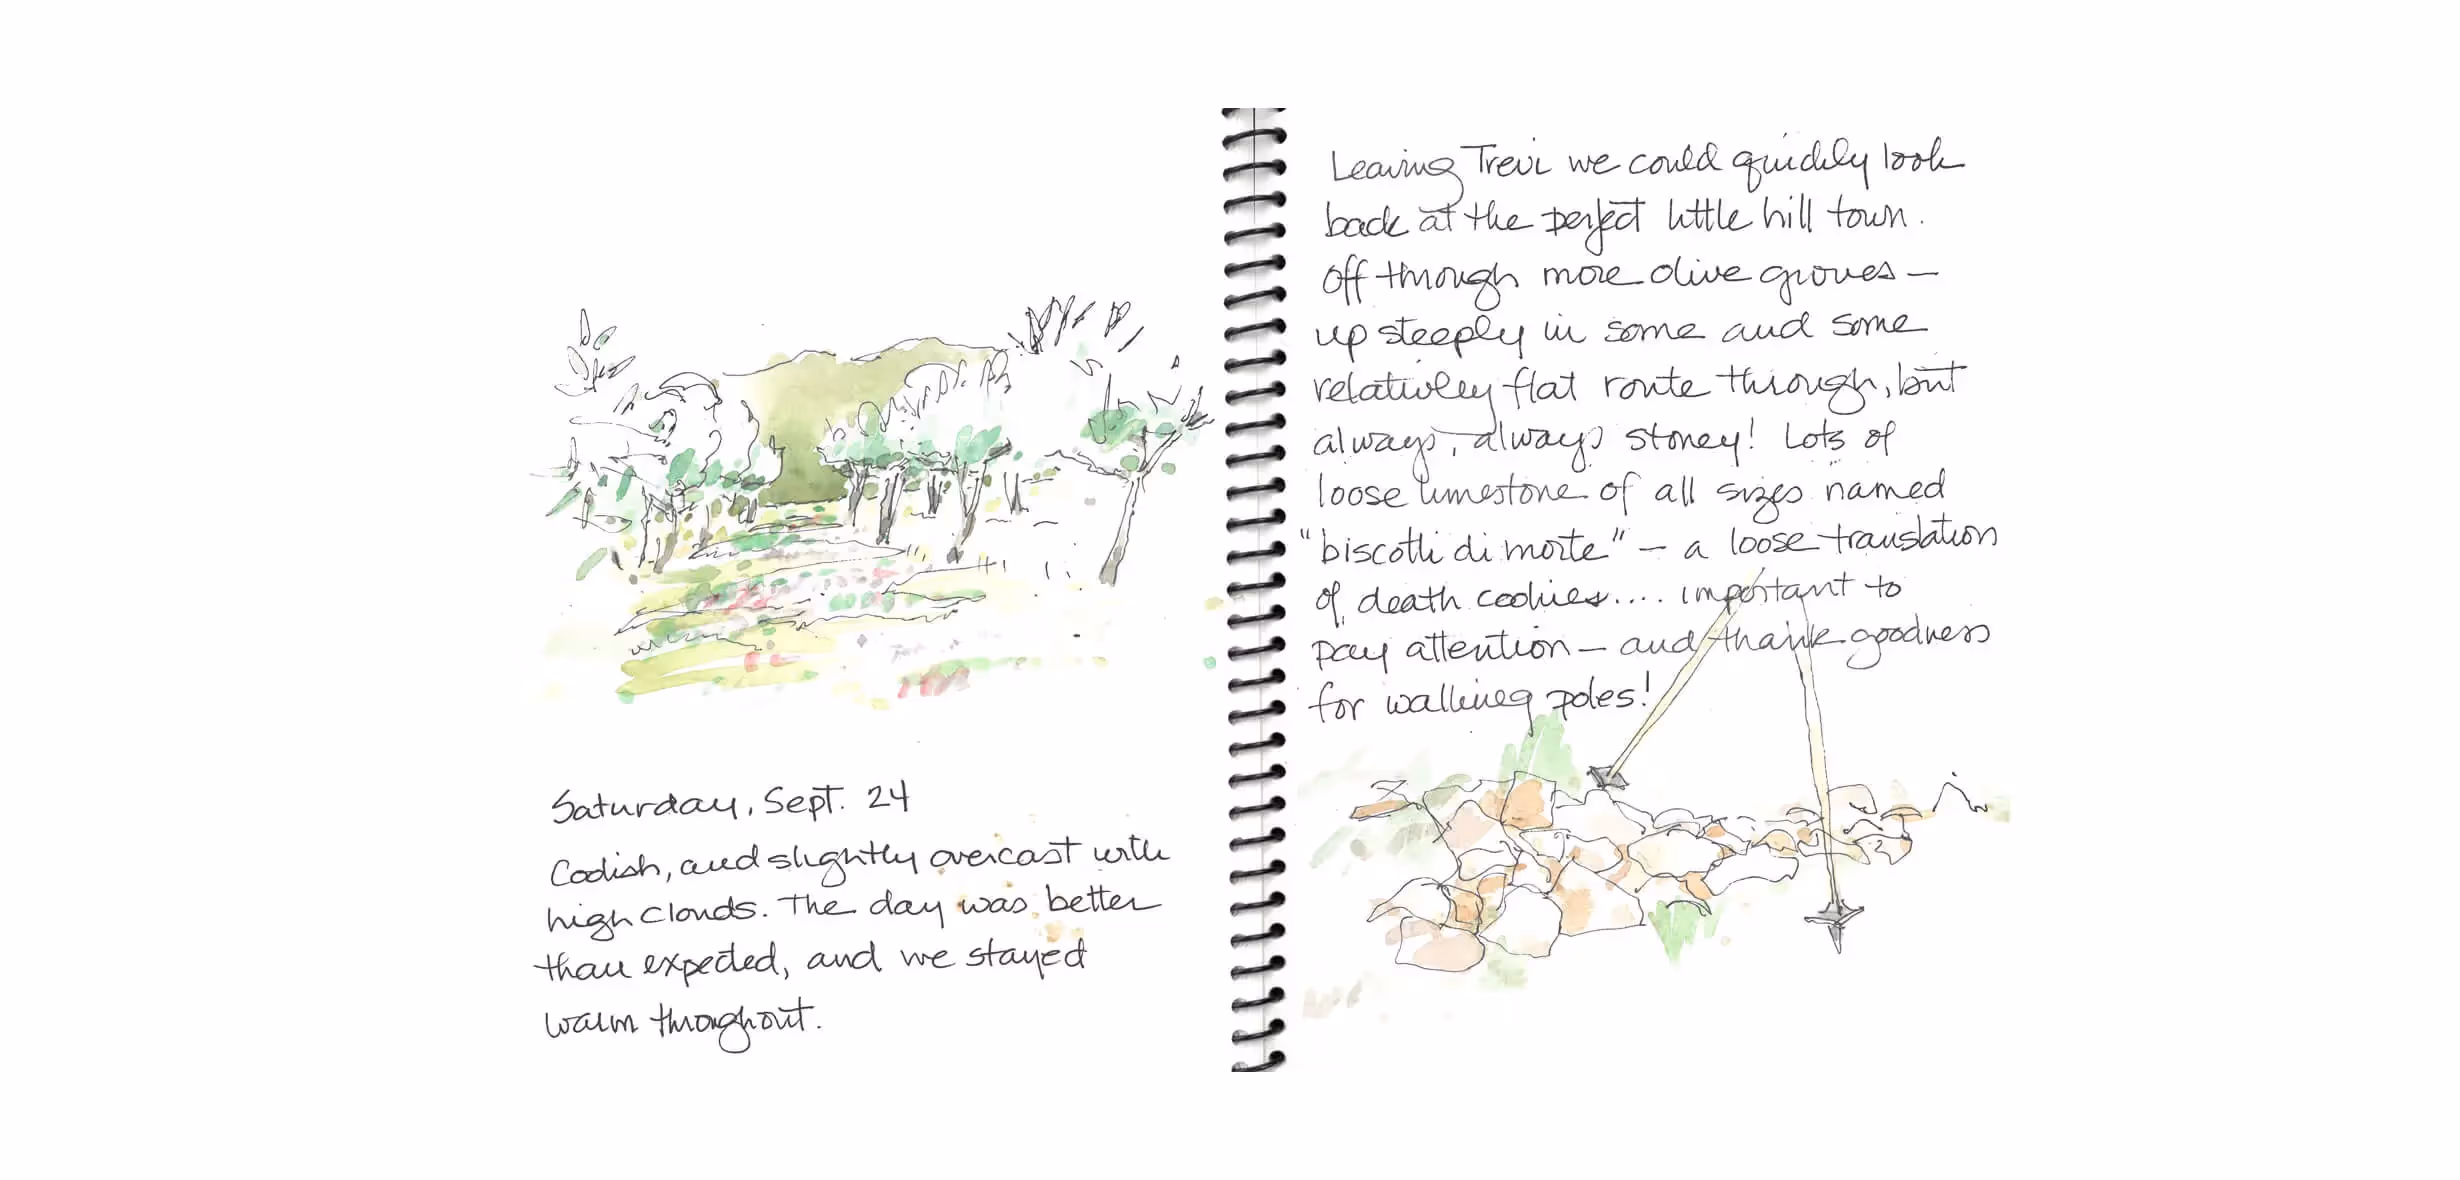 Saturday, Sept. 24
Coolish, and slightly overcast with
high clouds. The day was better
than expected, and we stayed
warm throughout.
Leaving Trevi we could quickly look
back at the perfect little hill town.
Off through more olive groves —
up steeply in some and some
relativley flat route through, but
always, always stoney! Lots of
loose limestone of all sizes named
"biscotti di morte" — a loose translation
of death cookies.... important to
pay attention — and thank goodness
for walking poles!